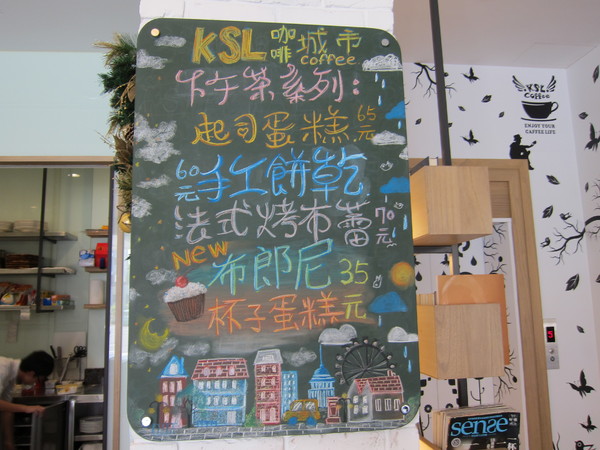 KSL 咖啡城市
coffee
下午茶系列:
起司蛋糕 65元
60元 手工餅乾
法式烤布蕾 70元
New
布郎尼 35
杯子蛋糕 元
KSL
Coffee
ENJOY YOUR
COFFEE LIFE
5
sense